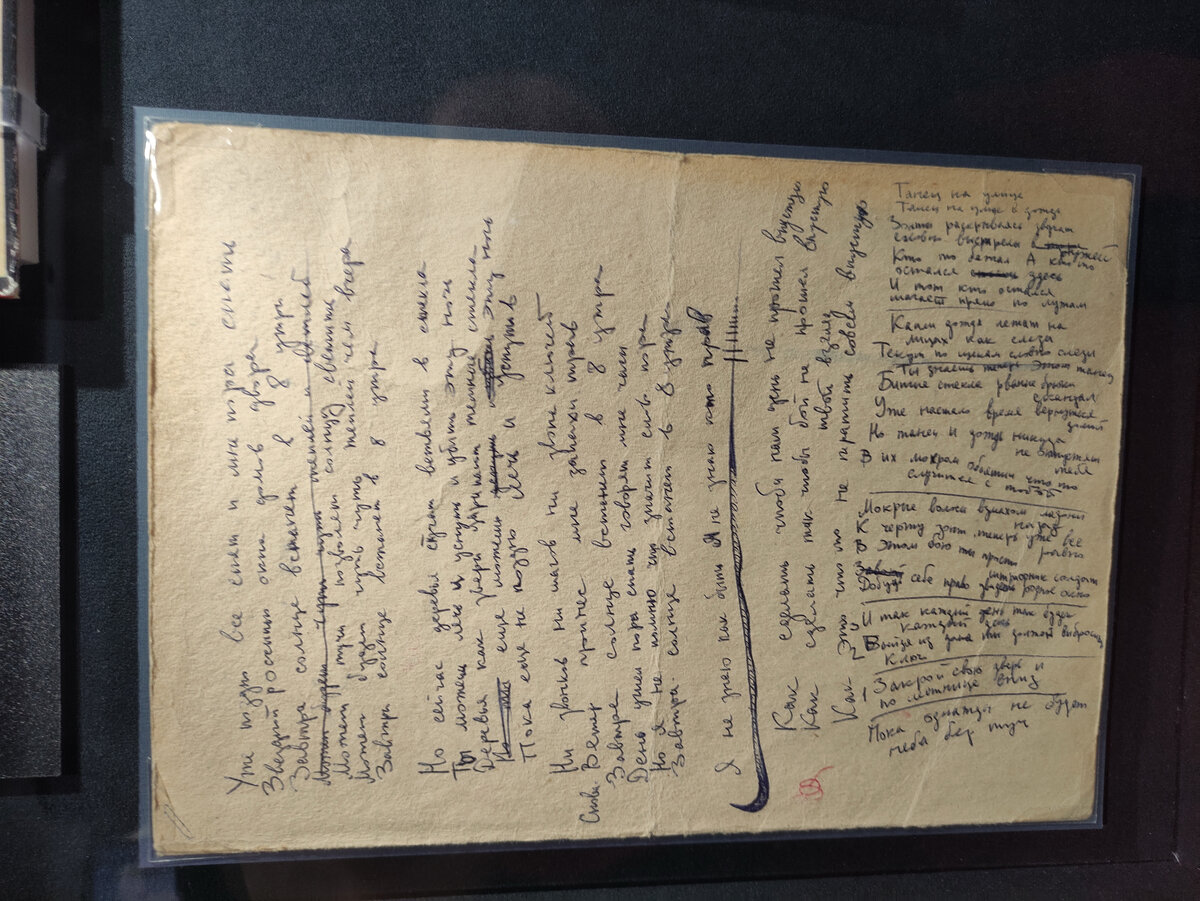 Уже поздно все спят и мне пора спать
Звездой россыпью окна домов двора
Завтра солнце встанет в 8 утра
Может будет чуть чуть теплей и светлей
Может тучи позволят солнцу светить
Может будет чуть чуть теплей чем вчера
Завтра солнце встанет в 8 утра
Но сейчас деревья стучат ветвями в стекла
Ты можешь лечь и уснуть и убить эту ночь
Деревья как звери царапают темные стекла
еще можешь эту ночь
Пока еще не поздно лечь и уснуть в
Ни звонков ни шагов ни звона ключей
Снова Ветер принес мне запахи трав
Завтра солнце встанет в 8 утра
День ушел пора спать говорят мне часы
Но я не помню что значит слово пора
Завтра солнце встанет в 8 утра
Я не знаю как быть Я не знаю кто прав
Как сделать чтобы наш день не прошел впустую
Как сделать так чтобы бой не прошел впустую
твой взгляд
Как это что то не тратить совсем впустую
Танец на улице
Танец на улице в дождь
Зонты раскрываясь звучат
словно выстрелы в ружей
Кто то бежал А кто то
остался здесь
И тот кто остался
шагает прямо по лужам
Капли дождя лежат на
лицах как слезы
Текут по щекам словно слезы
Ты знаешь теперь этот танец
Битые стекла рваные брюки
скандал
Уже настало время вернуться
домой
Но танец и дождь никогда
не отпустят тебя
В их мокрых объятьях что то
случится с тобой
Мокрые волосы взмахом ладони
назад
К черту зонт теперь уже все
равно
В этом бою ты просто
штрафник солдат
Добудь себе право увидеть родное окно
И так каждый день так будет
каждый день
2 Выйдя из дома ты должен выбросить
ключ
1 Закрой свою дверь и
по лестнице вниз
Пока однажды не будет
неба без туч